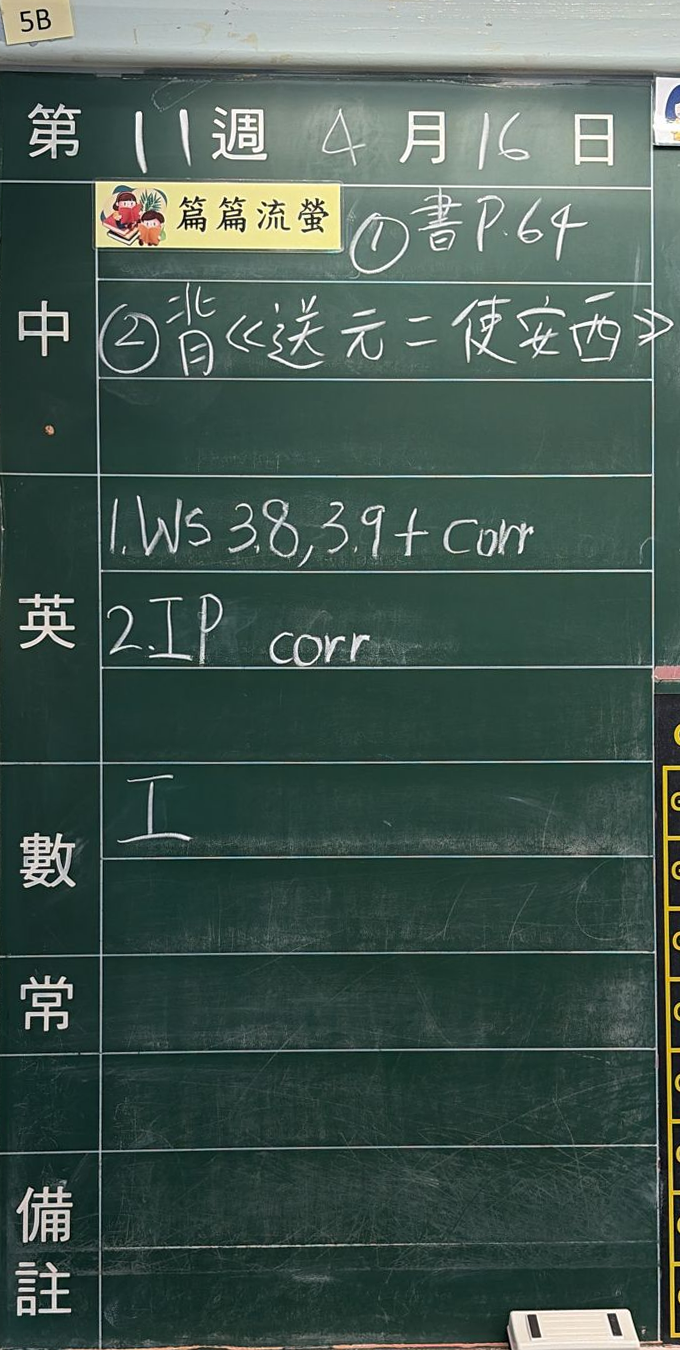 5B
第 11 週 4 月 16 日
中 篇篇流螢 ①書P.64
②背《送元二使安西》
英 1.WS 3.8,3.9+corr
2.IP corr
數 工
常
備註